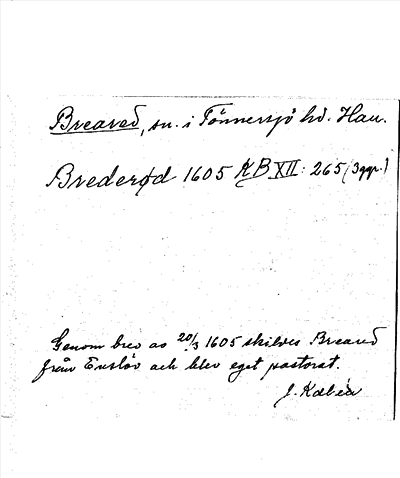 Breared, sn. i Tönnersjö hd. Hall.
Brederød 1605 KB XII: 265 (3ggr.)
Genom brev av 20/3 1605 skildes Breared
från Enslöv och blev eget pastorat.
J. Kalén